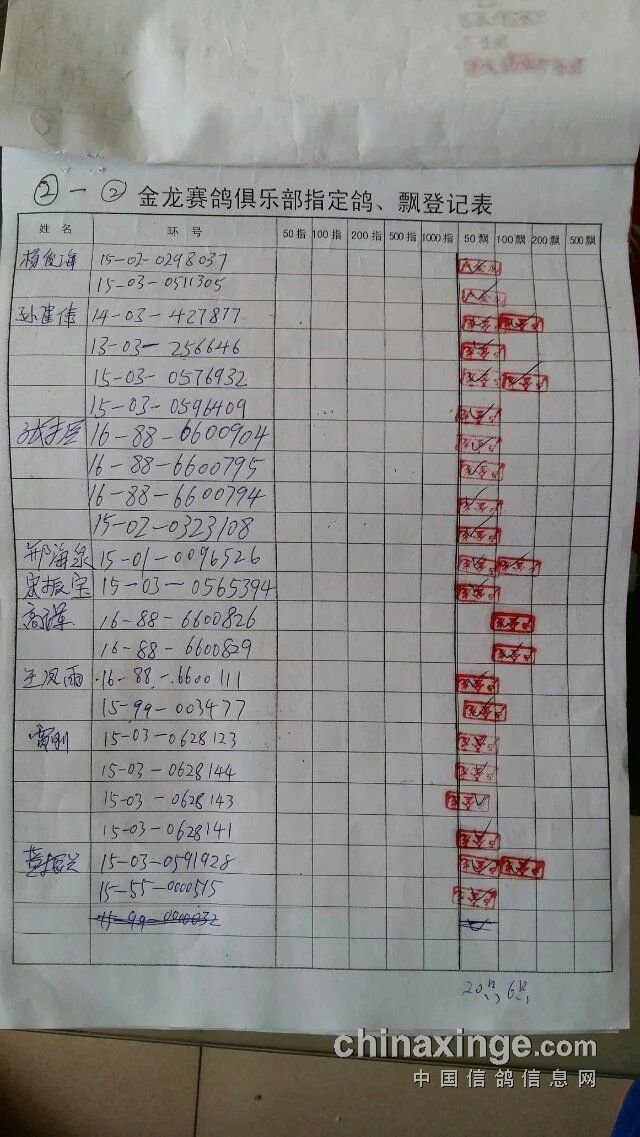 ② - ② 金龙赛鸽俱乐部指定鸽、飘登记表
姓名 环号 50指 100指 200指 500指 1000指 50飘 100飘 200飘 500飘
杨俊海 15-02-0298037
15-03-0511305
孙建伟 14-03-427877
13-03-256646
15-03-0576932
15-03-0596409
16-88-6600904
16-88-6600795
16-88-6600794
15-02-0323108
郑海泉 15-01-0096526
宋振宝 15-03-0565394
16-88-6600826
16-88-6600829
王凤雨 16-88-6600111
15-99-003477
雷刚 15-03-0628123
15-03-0628144
15-03-0628143
15-03-0628141
15-03-0591928
15-55-0000515
15-99-0000032
20只 6只
chinaxinge.com
中国信鸽信息网